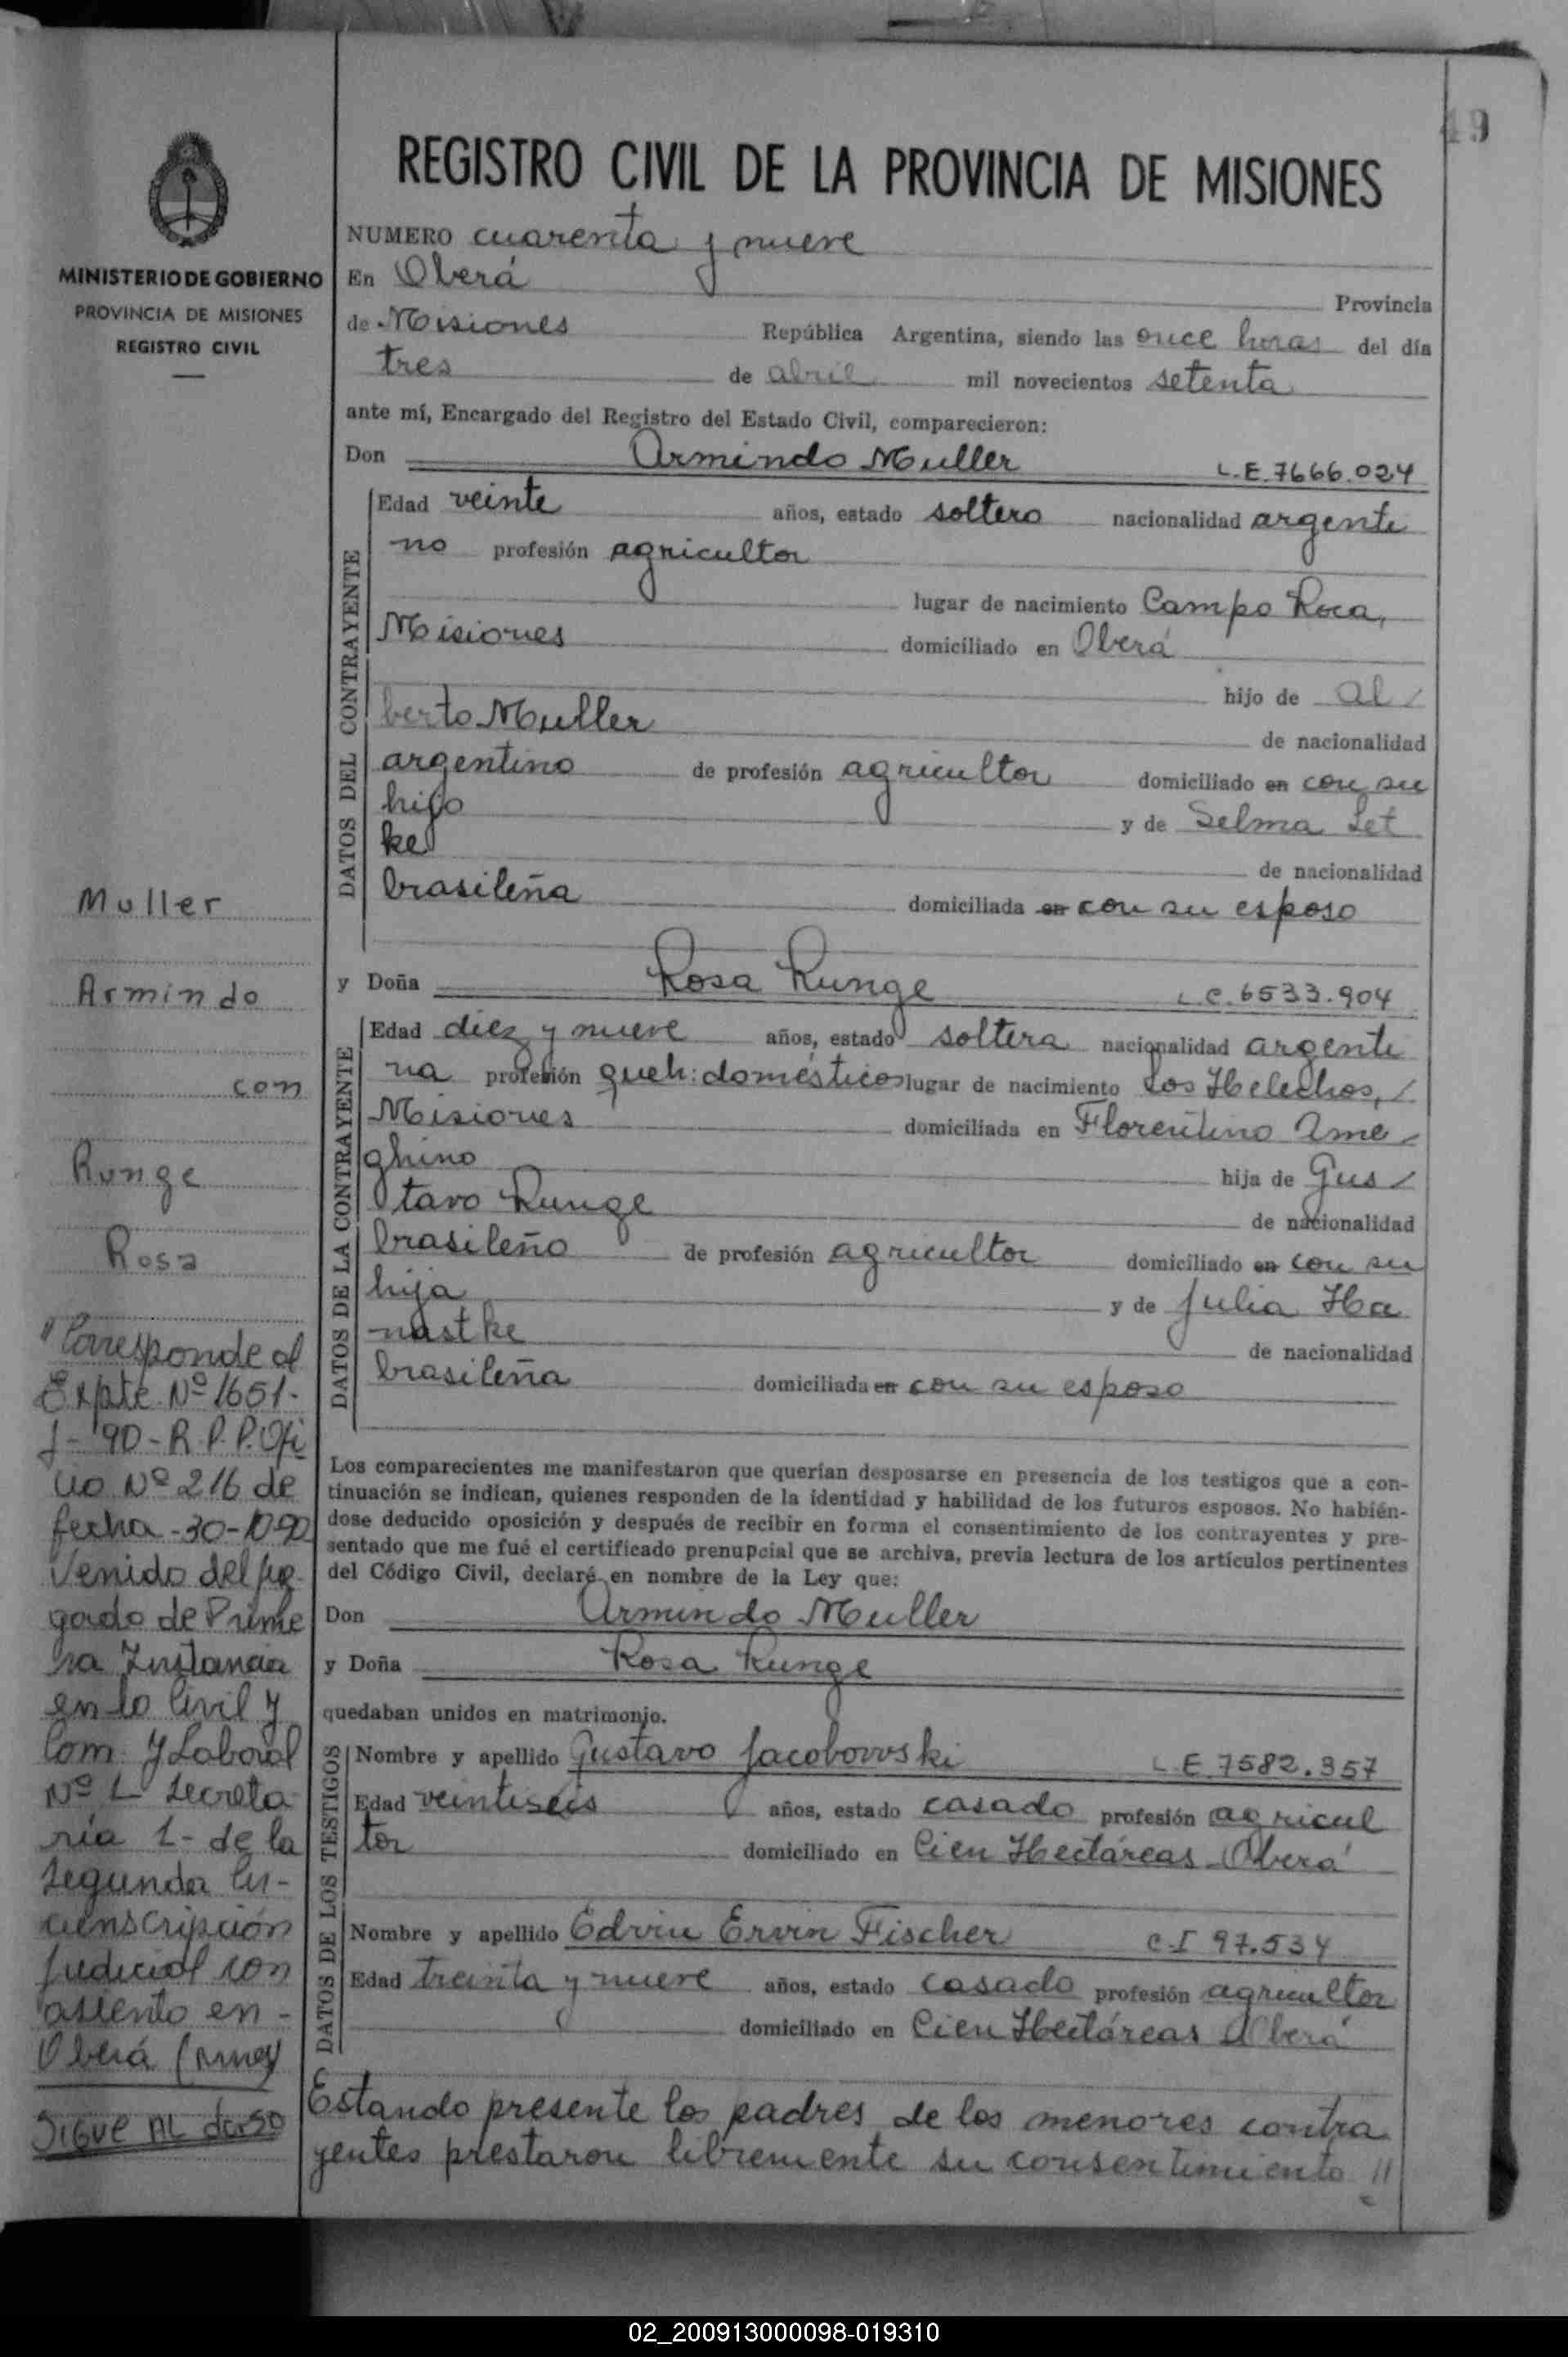 49
REGISTRO CIVIL DE LA PROVINCIA DE MISIONES
NUMERO cuarenta y nueve
En Oberá Provincia
de Misiones República Argentina, siendo las once horas del día
tres de abril mil novecientos setenta
ante mí, Encargado del Registro del Estado Civil, comparecieron:
Don Armindo Muller L.E. 7666.024
DATOS DEL CONTRAYENTE
Edad veinte años, estado soltero nacionalidad argenti
no profesión agricultor
lugar de nacimiento Campo Roca,
Misiones domiciliado en Oberá
hijo de Al/
berto Muller de nacionalidad
argentino de profesión agricultor domiciliado en con su
hijo y de Selma Let
ke de nacionalidad
brasileña domiciliada en con su esposo
y Doña Rosa Runge L.C. 6533.904
DATOS DE LA CONTRAYENTE
Edad diez y nueve años, estado soltera nacionalidad argenti
na profesión queh: domésticos lugar de nacimiento Los Helechos, /
Misiones domiciliada en Florentino Ame/
ghino hija de Gus/
tavo Runge de nacionalidad
brasileño de profesión agricultor domiciliado en con su
hija y de Julia Ha
nastke de nacionalidad
brasileña domiciliada en con su esposo
Los comparecientes me manifestaron que querían desposarse en presencia de los testigos que a con-
tinuación se indican, quienes responden de la identidad y habilidad de los futuros esposos. No habién-
dose deducido oposición y después de recibir en forma el consentimiento de los contrayentes y pre-
sentado que me fué el certificado prenupcial que se archiva, previa lectura de los artículos pertinentes
del Código Civil, declaré en nombre de la Ley que:
Don Armindo Muller
y Doña Rosa Runge
quedaban unidos en matrimonio.
DATOS DE LOS TESTIGOS
Nombre y apellido Gustavo Jacobowski L.E. 7582.357
Edad veintiseis años, estado casado profesión agricul
tor domiciliado en Cien Hectáreas - Oberá
Nombre y apellido Edvin Ervin Fischer C.I 97.534
Edad treinta y nueve años, estado casado profesión agricultor
domiciliado en Cien Hectáreas Oberá
Estando presente los padres de los menores contra
yentes prestaron libremente su consentimiento //
MINISTERIO DE GOBIERNO
PROVINCIA DE MISIONES
REGISTRO CIVIL
Muller
Armindo
con
Runge
Rosa
"Corresponde al
Expte. Nº 1651-
J-'90-R.P.P. Ofi
cio Nº 216 de
fecha -30-10-90
Venido del juz-
gado de Prime
ra Instancia
en lo Civil y
Com. y Laboral
Nº 1 Secreta
ría 1- de la
segunda Cir-
cunscripción
Judicial con
asiento en -
Oberá (Mnes)
SIGUE AL dorso
02_200913000098-019310